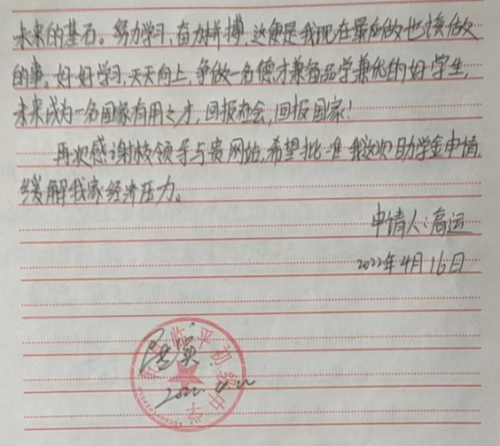 未来的基石。努力学习,奋力拼搏,这便是我现在最应做也该做
的事。好好学习,天天向上,争做一名德才兼备品学兼优的好学生,
未来成为一名国家有用之才,回报社会,回报国家!
再次感谢校领导与贵网站,希望批准我这次助学金申请,
缓解我家经济压力。
申请人:高运
2022年4月16日
临平初级中学
2022.4.22